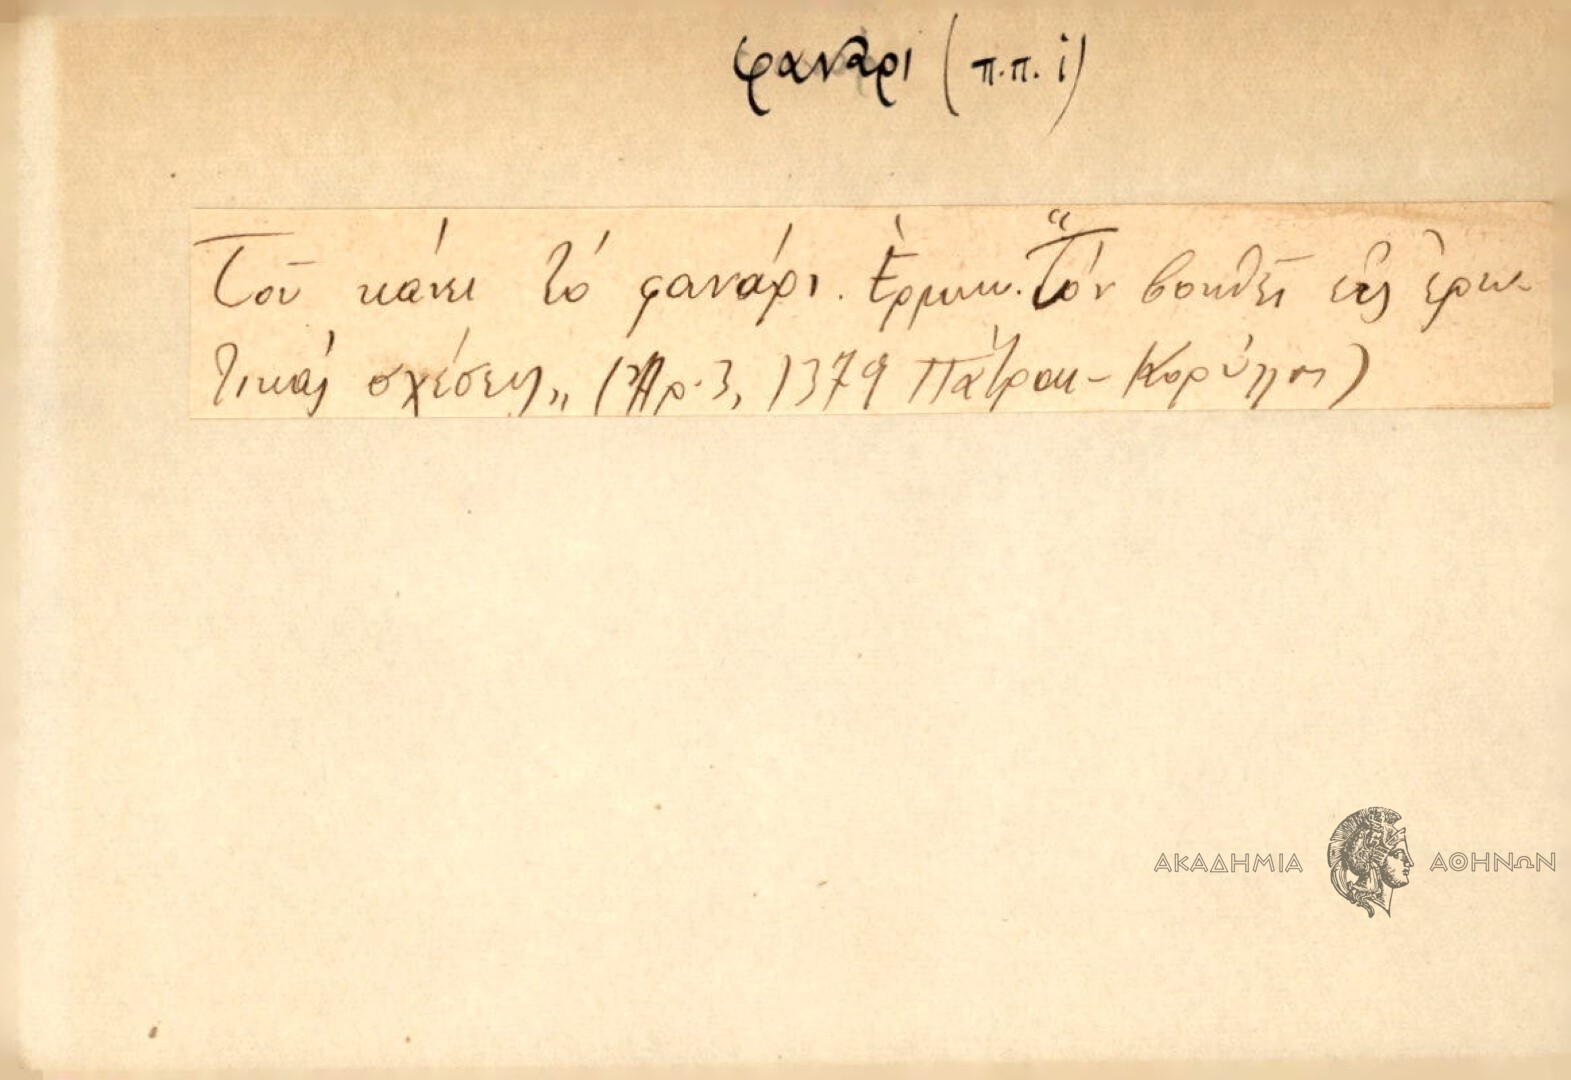 φανάρι (π.π. i)
Τοῦ κάνει τὸ φανάρι. Ἑρμην. "Τὸν βοηθεῖ εἰς ἐρω-
τικὰς σχέσεις„ (Ἀρ. 3, 1379 Πάτραι - Κορύλλος)
ΑΚΑΔΗΜΙΑ ΑΘΗΝΩΝ